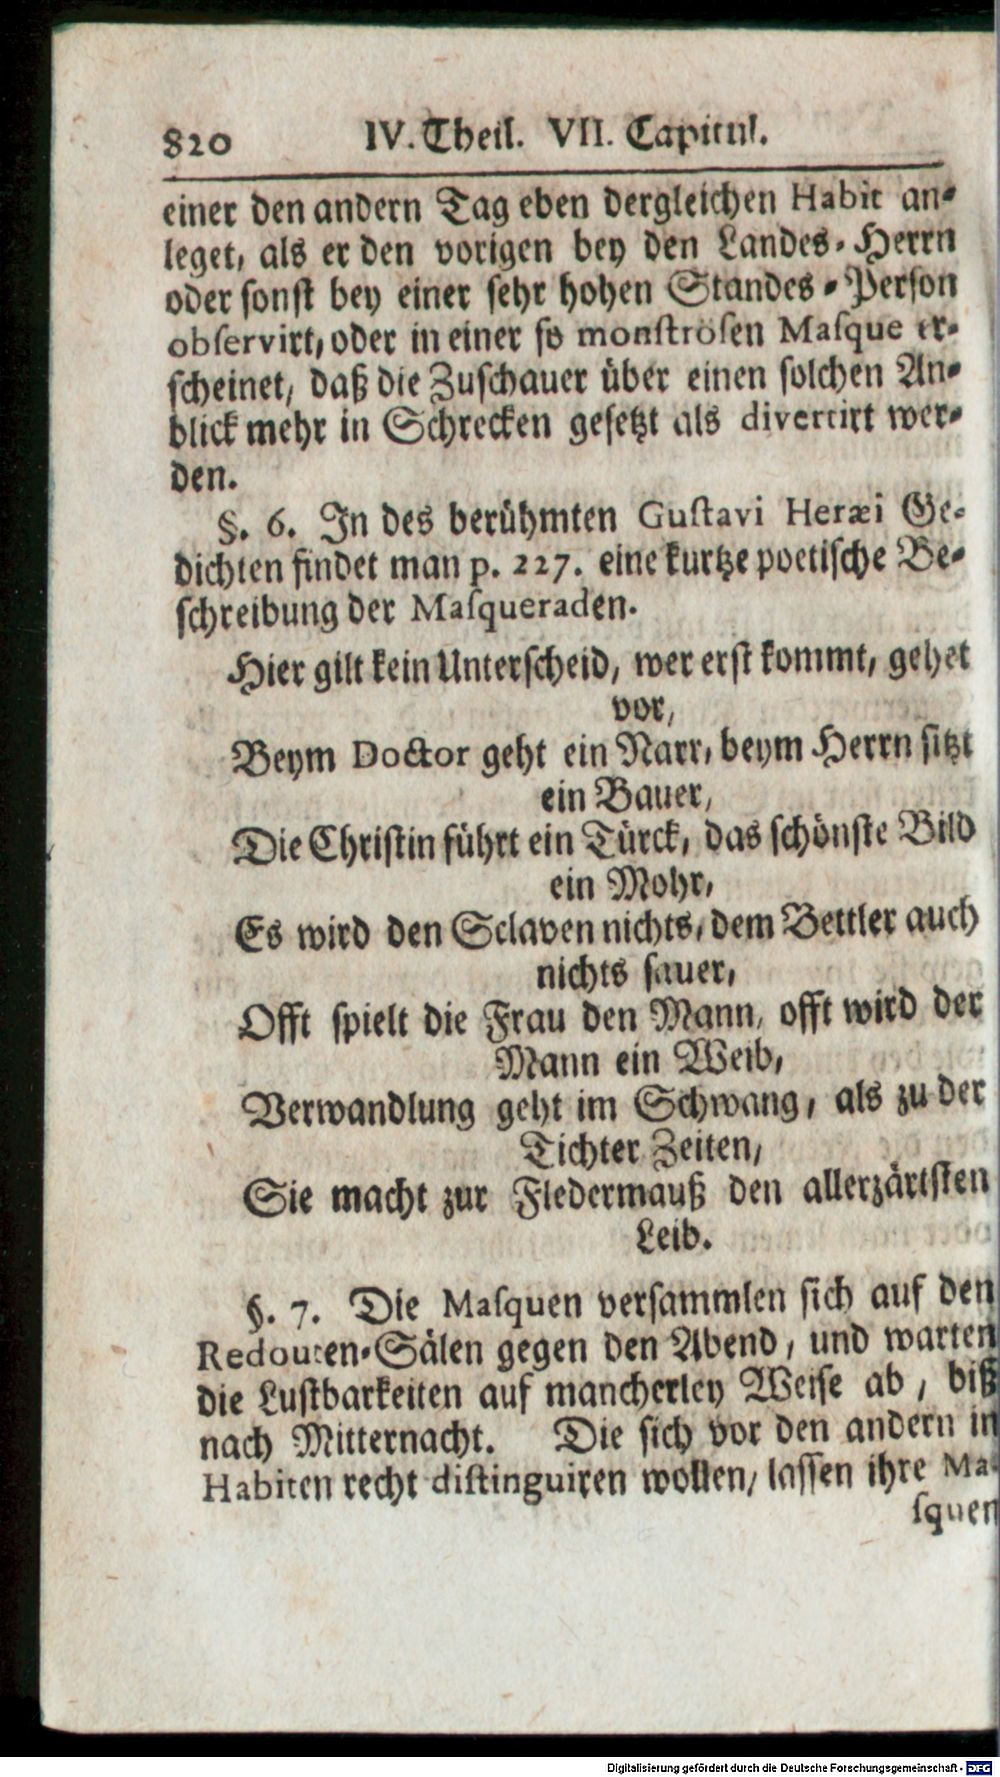 820 IV. Theil. VII. Capitul.
einer den andern Tag eben dergleichen Habit an-
leget, als er den vorigen bey den Landes-Herrn
oder sonst bey einer sehr hohen Standes-Person
observirt, oder in einer so monströsen Masque er-
scheinet, daß die Zuschauer über einen solchen An-
blick mehr in Schrecken gesetzt als divertirt wer-
den.
§. 6. In des berühmten Gustavi Heræi Ge-
dichten findet man p. 227. eine kurtze poetische Be-
schreibung der Masqueraden.
Hier gilt kein Unterscheid, wer erst kommt, gehet
vor,
Beym Doctor geht ein Narr, beym Herrn sitzt
ein Bauer,
Die Christin führt ein Türck, das schönste Bild
ein Mohr,
Es wird den Sclaven nichts, dem Bettler auch
nichts sauer,
Offt spielt die Frau den Mann, offt wird der
Mann ein Weib,
Verwandlung geht im Schwang, als zu der
Tichter Zeiten,
Sie macht zur Fledermauß den allerzärtsten
Leib.
§. 7. Die Masquen versammlen sich auf den
Redouten-Sälen gegen den Abend, und warten
die Lustbarkeiten auf mancherley Weise ab, biß
nach Mitternacht. Die sich vor den andern in
Habiten recht distinguiren wollen, lassen ihre Ma-
squen
Digitalisierung gefördert durch die Deutsche Forschungsgemeinschaft - DFG